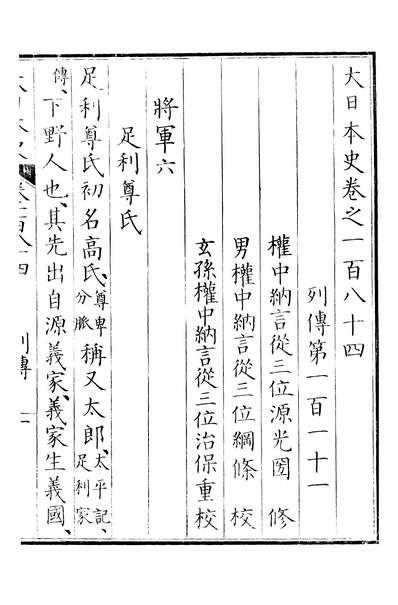 大日本史卷之一百八十四
列傳第一百一十一
權中納言從三位源光圀 修
男權中納言從三位綱條 校
玄孫權中納言從三位治保重校
將軍六
足利尊氏
足利尊氏初名高氏、尊卑分脈稱又太郎、太平記、足利家
傳、下野人也、其先出自源義家、義家生義國、